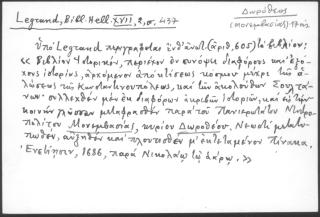 Legrand, Bibl. Hell. XVII, 2, σ. 437
Δωρόθεος
(Μονεμβασίας) 17 αἰ.
Ὑπὸ Legrand περιγράφεται ἐνθ' ἀνωτ. (ἀριθ. 605) τὸ βιβλίον:
« Βιβλίον Ἱστορικόν, περιέχον ἐν συνόψει διαφόρους καὶ ἐξό-
χους ἱστορίας, ἀρχόμενον ἀπὸ κτίσεως κόσμου μέχρι τῆς ἁ-
λώσεως τῆς Κωνσταντινουπόλεως, καὶ τῶν ἀκολούθων Σουλτά-
νων· συλλεχθὲν μὲν ἐκ διαφόρων ἀκριβῶν ἱστοριῶν, καὶ εἰς τὴν
κοινὴν γλῶσσαν μεταφρασθὲν παρὰ τοῦ Ἱερωτάτου Μητρο-
πολίτου Μονεμβασίας, κυρίου Δωροθέου. Νεωστὶ μετατυ-
πωθέν, αὐξηθὲν καὶ πλουτισθὲν μ' ἐκτεταμένον πίνακα.
Ἐνετίησιν, 1686, παρὰ Νικολάῳ τῷ Σάρῳ. »